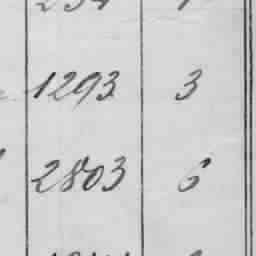 1293 3
2803 6